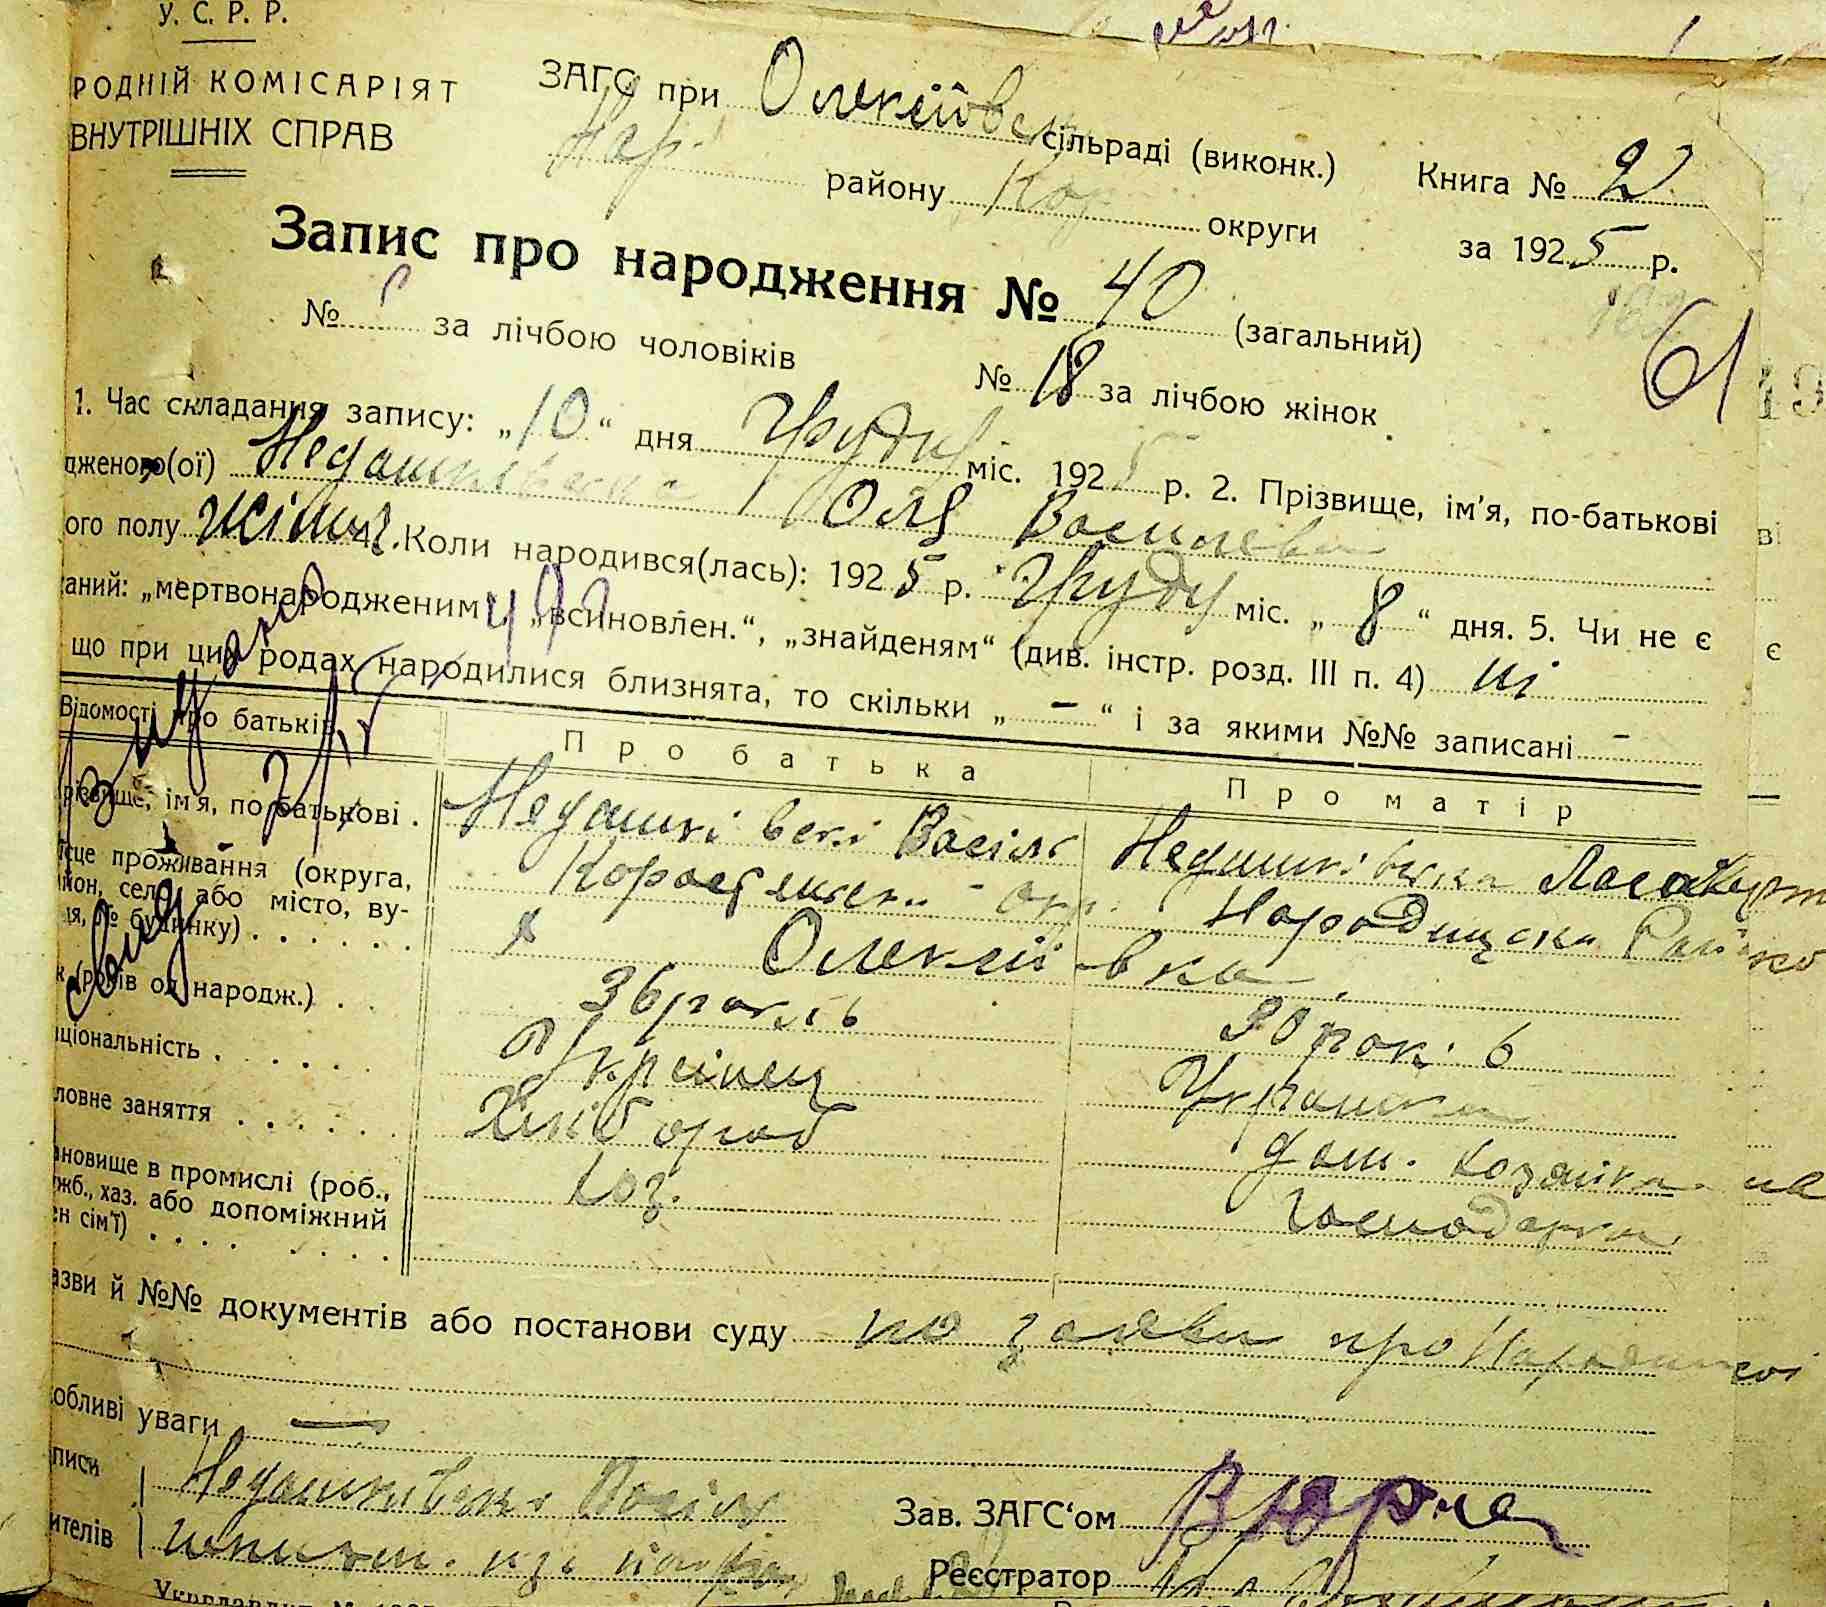 У. С. Р. Р.
РОДНІЙ КОМІСАРІЯТ
ВНУТРІШНІХ СПРАВ
ЗАГС при Олексіївск сільраді (виконк.) Книга № 2
Нар. району Кор округи за 1925 р.
Запис про народження № 40 (загальний)
61
№ за лічбою чоловіків № 18 за лічбою жінок
1. Час складання запису: „10“ дня Грудня міс. 1925 р. 2. Прізвище, ім'я, по-батькові
дженого(ої) Недашківська Оля Васильева
ого полу жіноч. 4. Коли народився(лась): 1925 р. Грудня міс. „8“ дня. 5. Чи не є
аний: „мертвонародженим“, „всиновлен.“, „знайденям“ (див. інстр. розд. III п. 4) ні
що при цих родах народилися близнята, то скільки „ – “ і за якими №№ записані –
Відомості про батьків Про батька Про матір
різвище, ім'я, по батькові . Недашківскі Васіль Недашківська
ісце проживання (округа, Коростенск. окр. Народицька
йон, село або місто, ву-
ця, № будинку) . . . . . . Олексіївка
к (років од народж.) . . 36 років 30 років
ціональність . . . . . Українец Украинка
ловне заняття . . . . . . Хлібороб дом. хозяйка
ановище в промислі (роб., хоз. господарки
ужб., хаз. або допоміжний
ен сім'ї) . . . . . . . .
азви й №№ документів або постанови суду по заяви про
обливі уваги —
писи Недашківскі Васіль
ителів
Зав. ЗАГС‘ом
Реєстратор